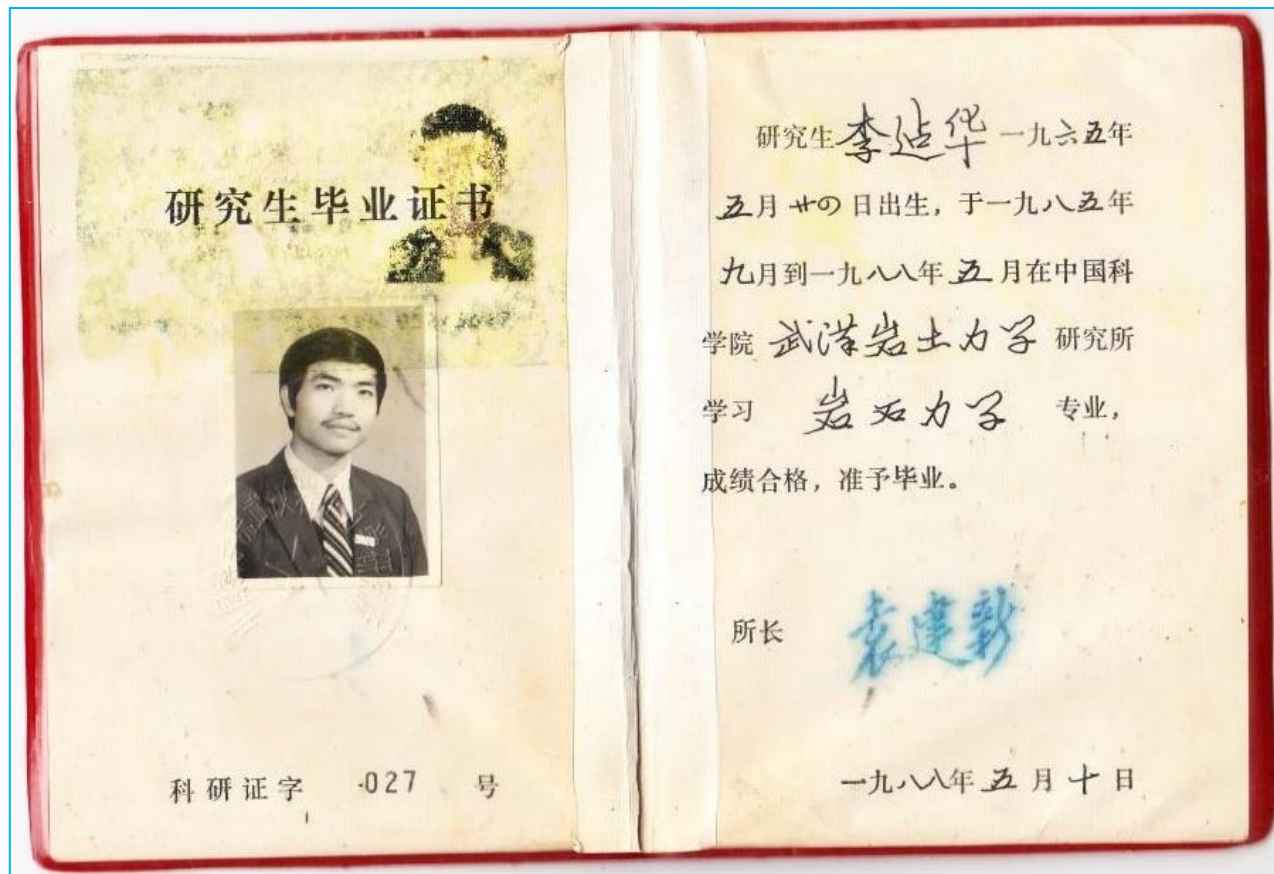 研究生毕业证书
科研证字 027 号
研究生 李 华 一九六五年
五月廿四日出生，于一九八五年
九月到一九八八年五月在中国科
学院 武汉岩土力学 研究所
学习 岩石力学 专业，
成绩合格，准予毕业。
所长 袁建新
一九八八年五月十日